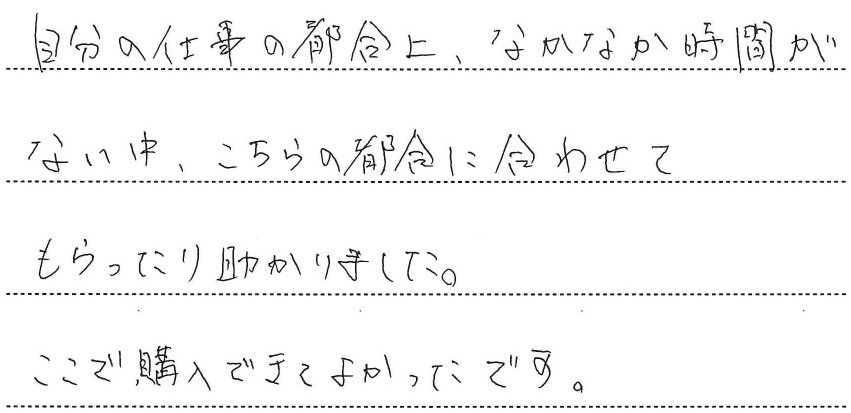 自分の仕事の都合上、なかなか時間が
ない中、こちらの都合に合わせて
もらったり助かりました。
ここで購入できてよかったです。